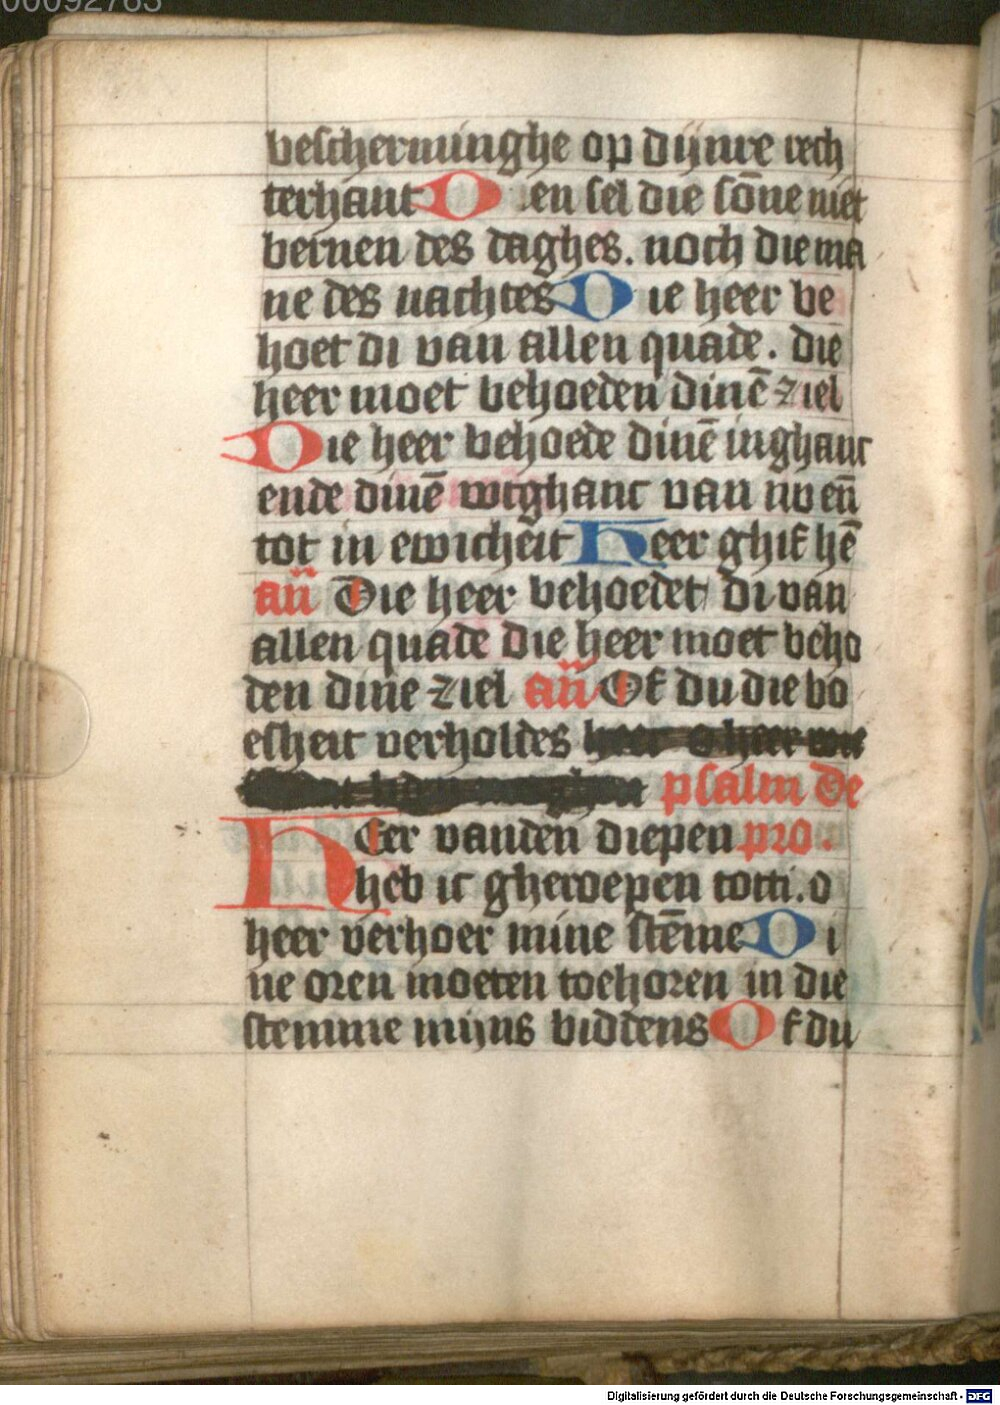 00092763
bescherminghe op dijnre rech
terhant D en sel die sōne niet
bernen des daghes. noch die ma
ne des nachtes Die heer be
hoet di van allen quade. die
heer moet behoeden dinē ziel
Die heer behoede dinē inghanc
ende dinē wtghanc van nv eñ
tot in ewicheit Heer ghif hē
añ Die heer behoedet di van
allen quade die heer moet beho
den dine ziel añ Of du die bo
esheit verholdes heer o heer wie
psalm De
HEer vanden diepen pro.
heb ic gheroepen totti. o
heer verhoer mine stēme Di
ne oren moeten toehoren in die
stemme mijns biddens Of du
Digitalisierung gefördert durch die Deutsche Forschungsgemeinschaft - DFG